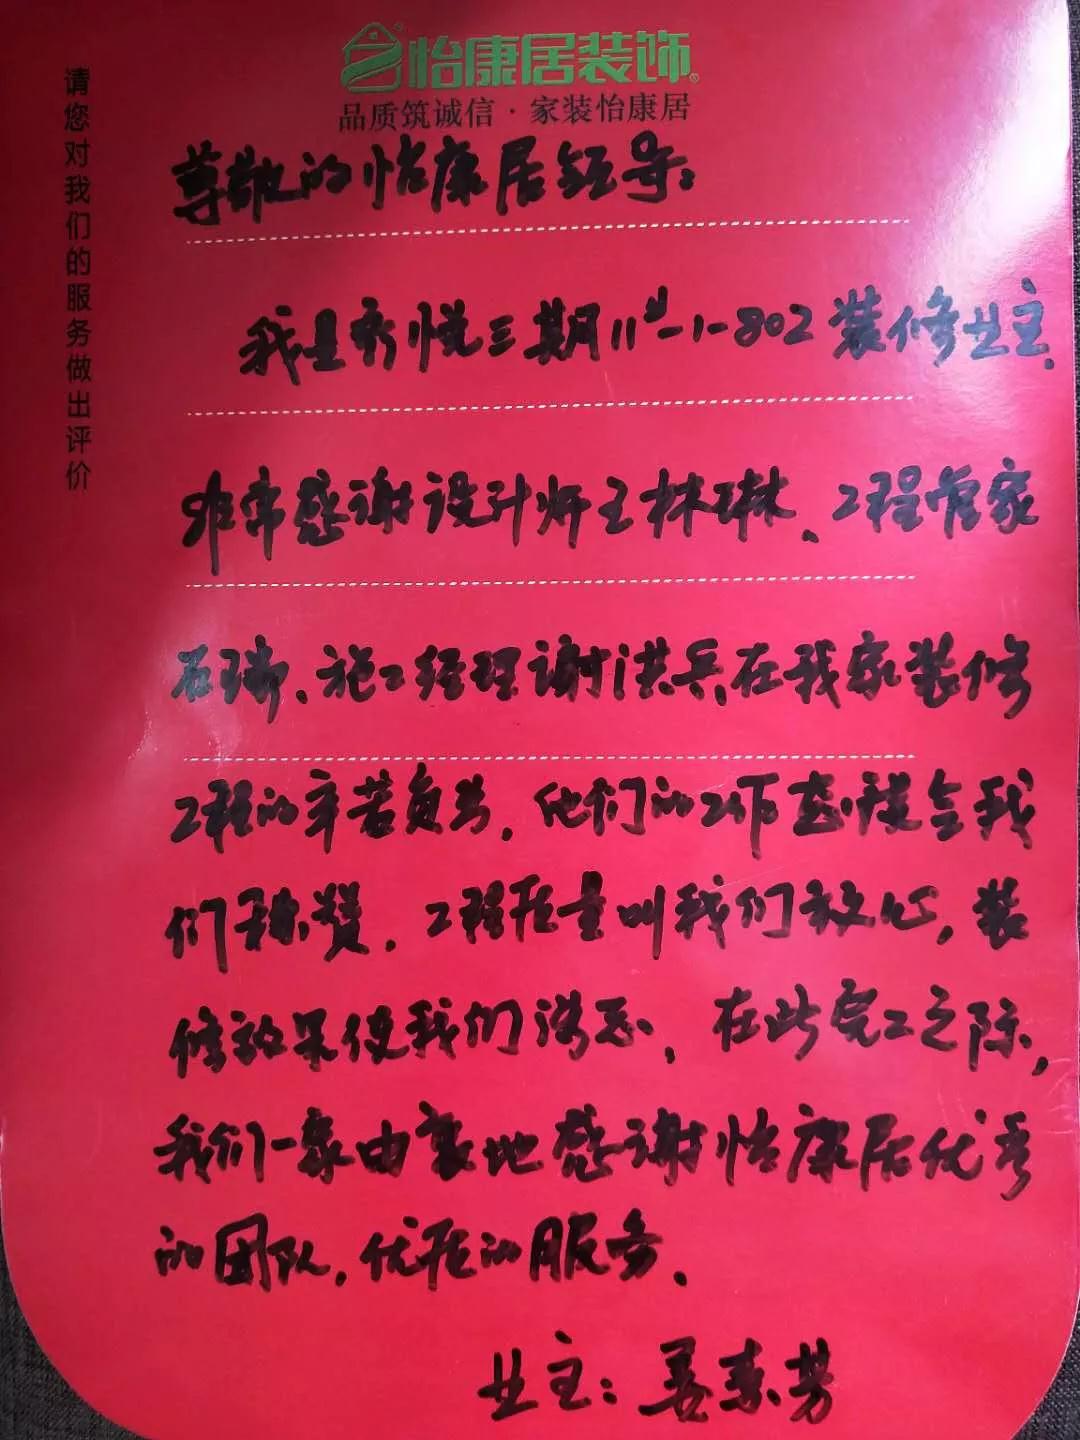 怡康居装饰
品质筑诚信·家装怡康居
请您对我们的服务做出评价
尊敬的怡康居领导：
我是秀悦三期11#-1-802装修业主.
非常感谢设计师王林琳、工程管家
石瑞、施工经理谢洪兵,在我家装修
工程的辛苦负劳.他们的工作态度令我
们称赞.工程质量叫我们放心,装
修效果使我们满意,在此完工之际,
我们一家由衷地感谢怡康居优秀
的团队,优质的服务.
业主：姜素芳